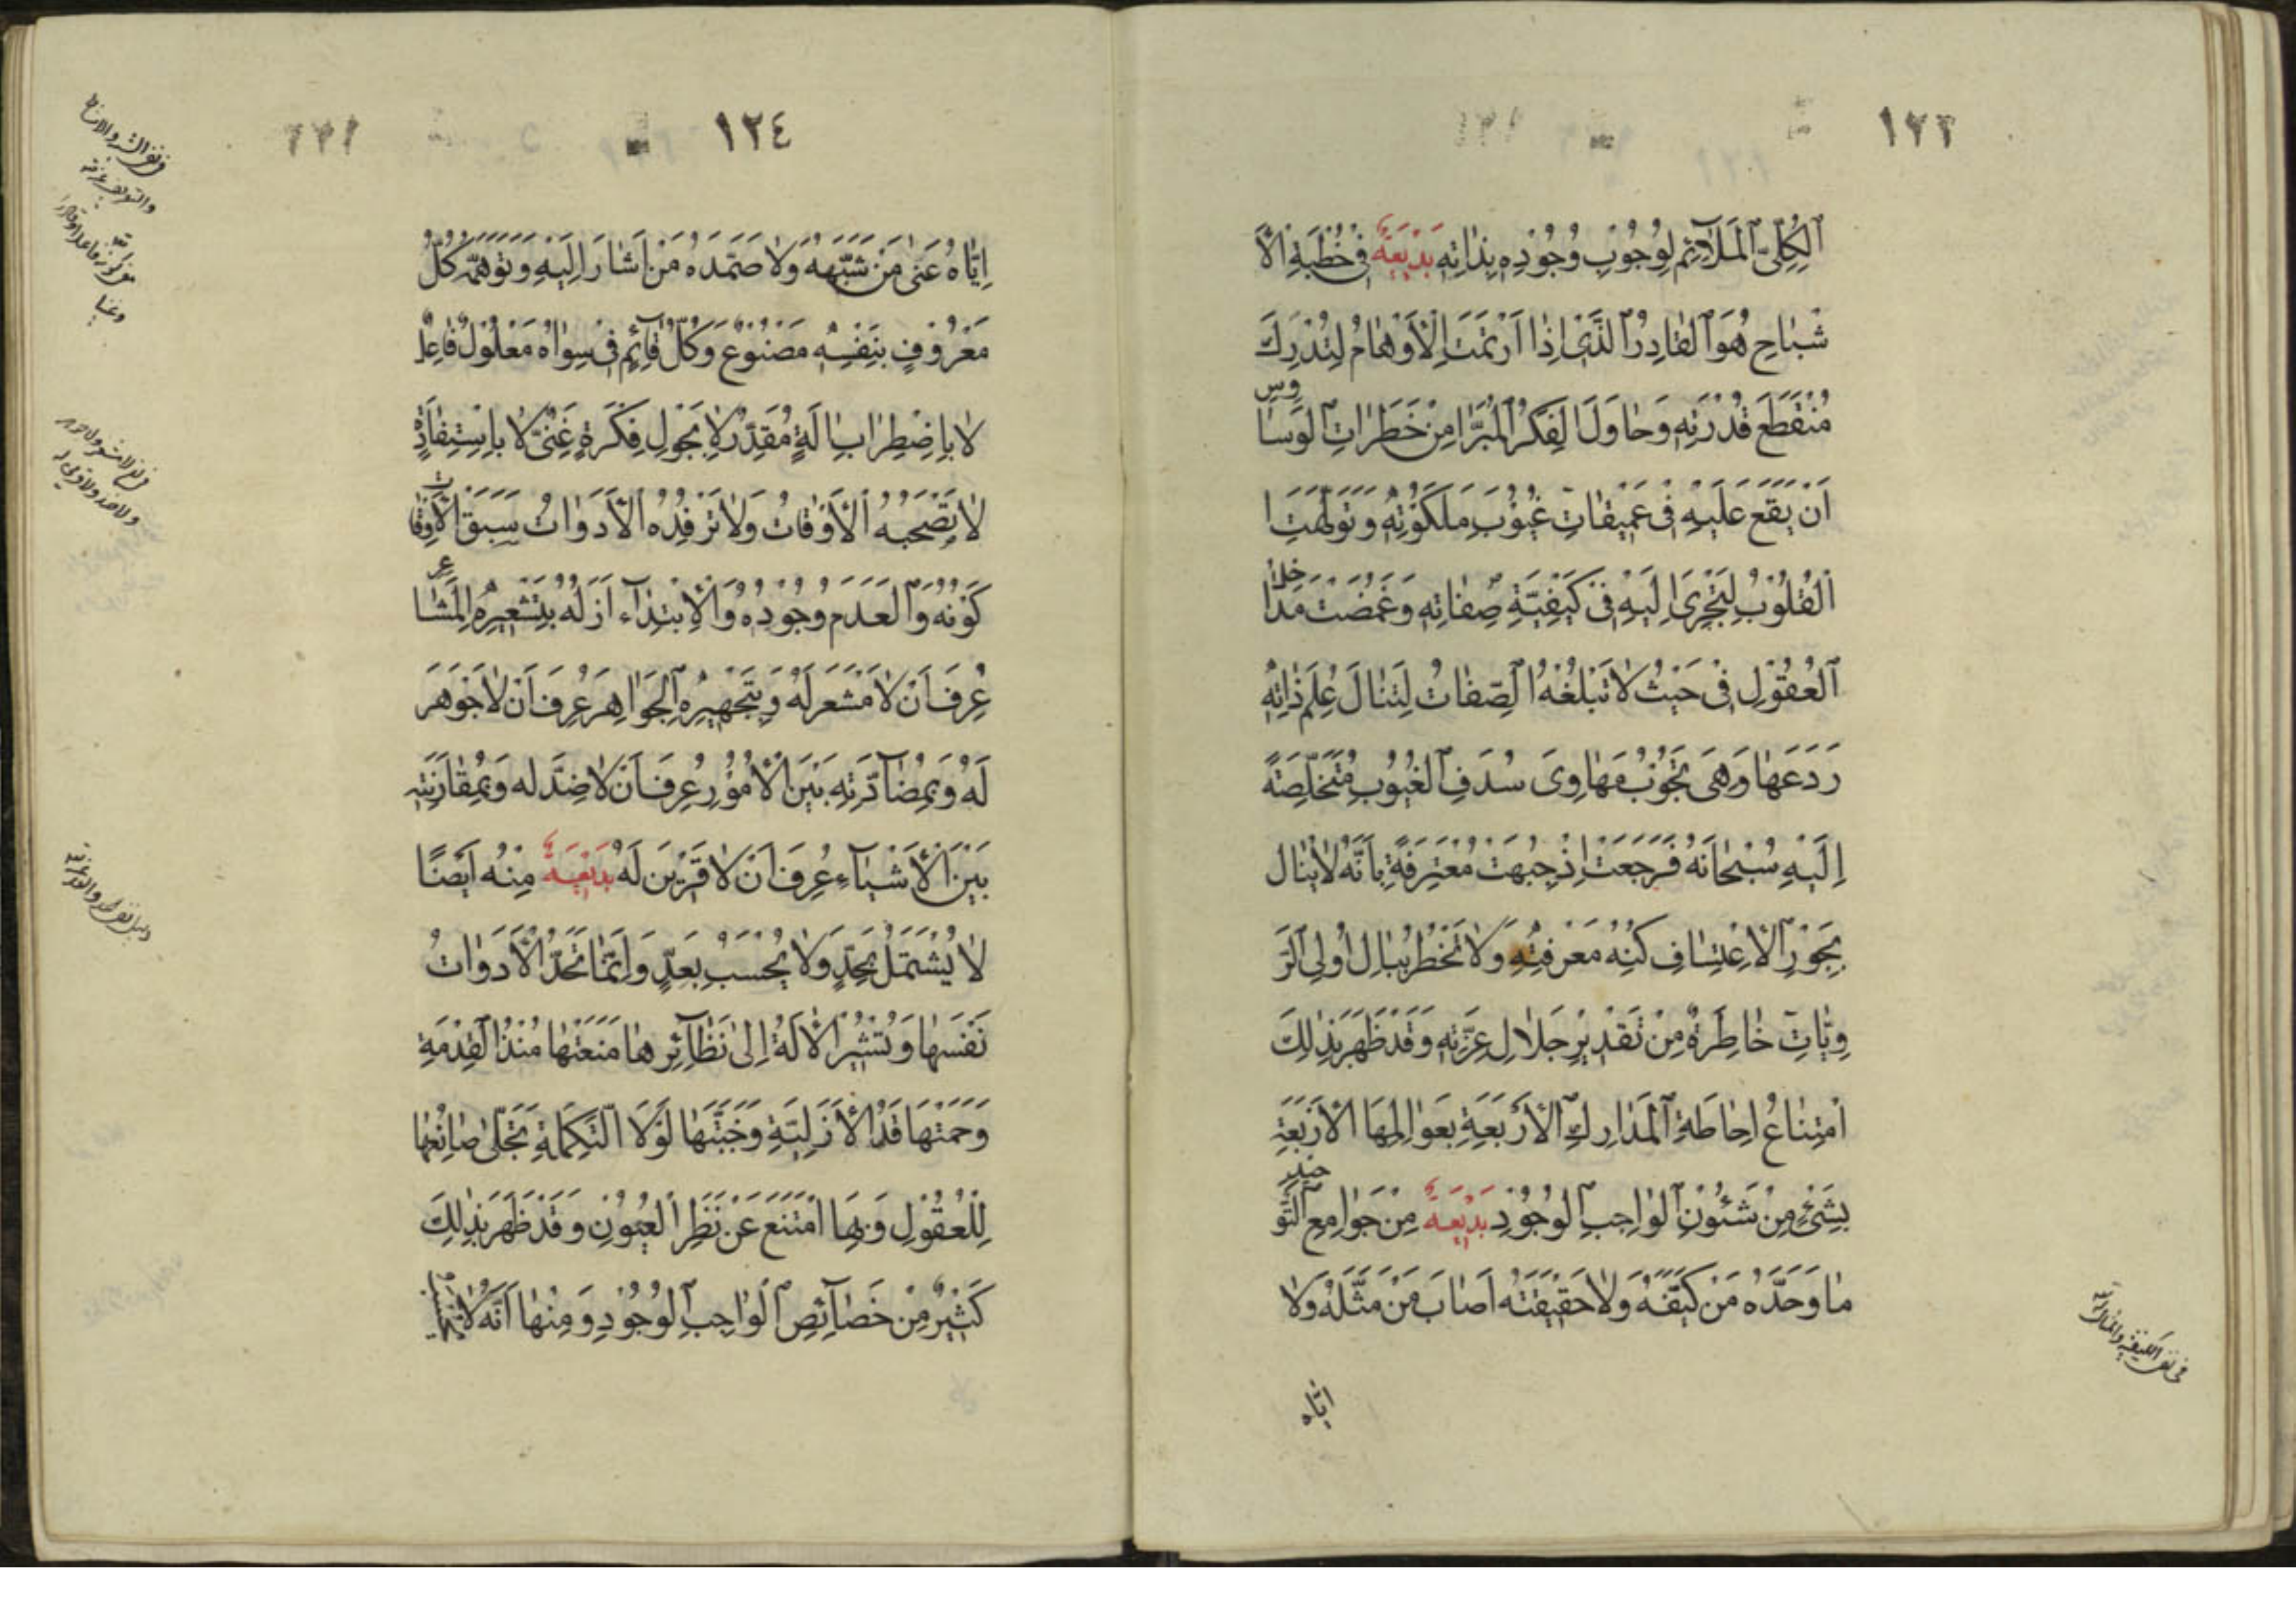 ١٢٣
اَلْكُلِّىّ الْمَلَآئِمِ لِوُجُوْبِ وُجُوْدِهِ بِذَاتِهِ بَدِيْعَةٌ فِىْ خُطْبَةِ الْاَ
شْبَاحِ هُوَ الْقَادِرُ الَّذِىْ اِذَا ارْتَمَتِ الْاَوْهَامُ لِتُدْرِكَ
مُنْقَطَعَ قُدْرَتِهِ وَحَاوَلَ الْفِكْرُ الْمُبَرَّا مِنْ خَطَرَاتِ الْوَسَاوِسِ
اَنْ يَقَعَ عَلَيْهِ فِىْ عَمِيْقَاتِ غُيُوْبِ مَلَكُوْتِهِ وَتَوَلَّهَتِ
الْقُلُوْبُ لِتَجْرِىَ اِلَيْهِ فِىْ كَيْفِيَّةِ صِفَاتِهِ وَغَمَضَتْ مَدَاخِلُ
الْعُقُوْلِ فِىْ حَيْثُ لَا تَبْلُغُهُ الصِّفَاتُ لِتَنَالَ عِلْمَ ذَاتِهِ
رَدَعَهَا وَهِىَ تَجُوْبُ مَهَاوِىَ سُدَفِ الْغُيُوْبِ مُتَخَلِّصَةً
اِلَيْهِ سُبْحَانَهُ فَرَجَعَتْ اِذْ جُبِهَتْ مُعْتَرِفَةً بِاَنَّهُ لَا يُنَالُ
بِجَوْرِ الْاِعْتِسَافِ كُنْهُ مَعْرِفَتِهِ وَلَا تَخْطُرُ بِبَالِ اُولِى الرَّ
وِيَّاتِ خَاطِرَةٌ مِنْ تَقْدِيْرِ جَلَالِ عِزَّتِهِ وَقَدْ ظَهَرَ بِذٰلِكَ
امْتِنَاعُ اِحَاطَةِ الْمَدَارِكِ الْاَرْبَعَةِ بِعَوَالِمِهَا الْاَرْبَعَةِ
بِشَىْءٍ مِنْ شَئُوْنِ الْوَاجِبِ الْوُجُوْدِ بَدِيْعَةٌ مِنْ جَوَامِعِ التَّوْحِيْدِ
مَا وَحَّدَهُ مَنْ كَيَّفَهُ وَلَا حَقِيْقَتَهُ اَصَابَ مَنْ مَثَّلَهُ وَلَا
فى نفى الكيفية والمماثلة
اِيَّاهُ
١٢٤
اِيَّاهُ عَنٰى مَنْ شَبَّهَهُ وَلَا صَمَدَهُ مَنْ اَشَارَ اِلَيْهِ وَتَوَهَّمَهُ كُلُّ
مَعْرُوْفٍ بِنَفْسِهِ مَصْنُوْعٌ وَكُلُّ قَآئِمٍ فِىْ سِوَاهُ مَعْلُوْلٌ فَاعِلٌ
لَا بِاضْطِرَابِ اٰلَةٍ مُقَدِّرٌ لَا بِجَوْلِ فِكْرَةٍ غَنِىٌّ لَا بِاسْتِفَادَةٍ
لَا تَصْحَبُهُ الْاَوْقَاتُ وَلَا تَرْفِدُهُ الْاَدَوَاتُ سَبَقَ الْاَوْقَاتَ
كَوْنُهُ وَالْعَدَمَ وُجُوْدُهُ وَالْاِبْتِدَآءَ اَزَلُهُ بِتَشْعِيْرِهِ الْمَشَاعِرَ
عُرِفَ اَنْ لَا مَشْعَرَ لَهُ وَبِتَجْهِيْرِهِ الْجَوَاهِرَ عُرِفَ اَنْ لَا جَوْهَرَ
لَهُ وَبِمُضَآدَّتِهِ بَيْنَ الْاُمُوْرِ عُرِفَ اَنْ لَا ضِدَّ لَهُ وَبِمُقَارَنَتِهِ
بَيْنَ الْاَشْيَآءِ عُرِفَ اَنْ لَا قَرِيْنَ لَهُ بَدِيْعَةٌ مِنْهُ اَيْضًا
لَا يُشْتَمَلُ بِحَدٍّ وَلَا يُحْسَبُ بِعَدٍّ وَاِنَّمَا تَحُدُّ الْاَدَوَاتُ
نَفْسَهَا وَتُشِيْرُ الْاٰلَةُ اِلٰى نَظَآئِرِهَا مَنَعَتْهَا مُنْذُ الْقِدْمَةِ
وَحَمَتْهَا قَدُ الْاَزَلِيَّةِ وَجَنَّبَتْهَا لَوْلَا التَّكْمِلَةِ تَجَلّٰى صَانِعُهَا
لِلْعُقُوْلِ وَبِهَا امْتَنَعَ عَنْ نَظَرِ الْعُيُوْنِ وَقَدْ ظَهَرَ بِذٰلِكَ
كَثِيْرٌ مِنْ خَصَآئِصِ الْوَاجِبِ الْوُجُوْدِ وَمِنْهَا اَنَّهُ لَا